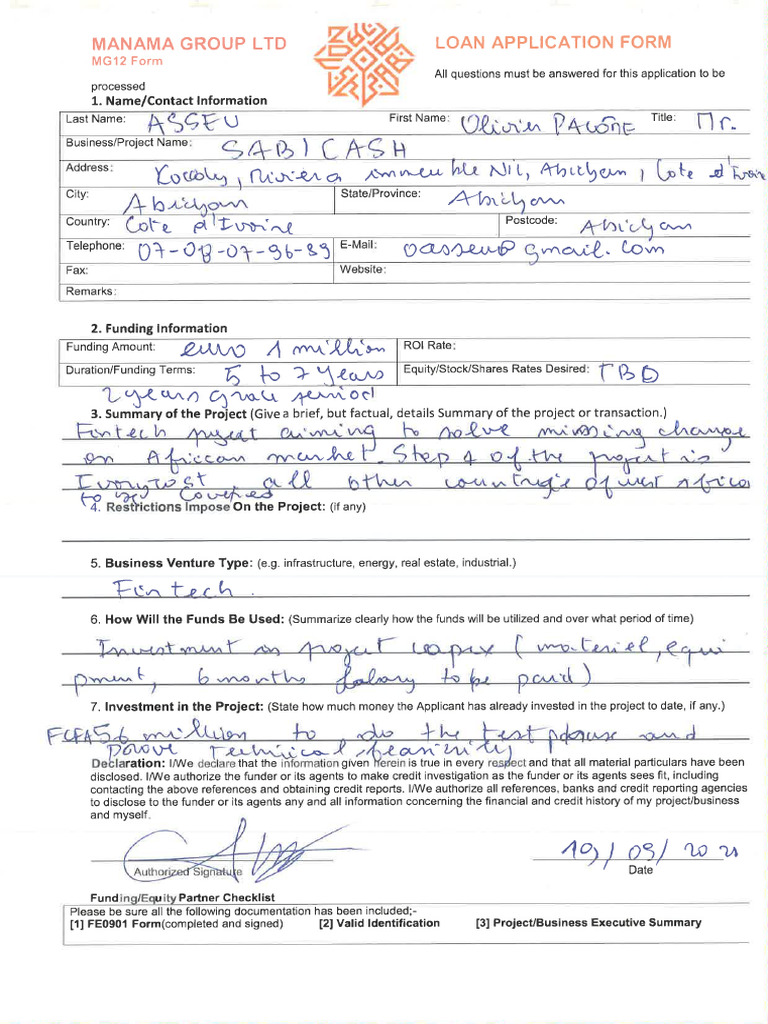 MANAMA GROUP LTD
LOAN APPLICATION FORM
MG12 Form
All questions must be answered for this application to be
processed
1. Name/Contact Information
Last Name: ASSEU First Name: Olivier PACÔME Title: Mr.
Business/Project Name: SABICASH
Address: Cocody, Riviera immeuble Nil, Abidjan, Cote d'Ivoire
City: Abidjan State/Province: Abidjan
Country: Cote d'Ivoire Postcode: Abidjan
Telephone: 07-08-07-96-89 E-Mail: oasseu@gmail.com
Fax: Website:
Remarks:
2. Funding Information
Funding Amount: euro 1 million ROI Rate:
Duration/Funding Terms: 5 to 7 Years Equity/Stock/Shares Rates Desired: TBD
2 years grace period
3. Summary of the Project (Give a brief, but factual, details Summary of the project or transaction.)
Fintech project aiming to solve missing change
on African market. Step 1 of the project is
Ivorycost, all other countries of west Africa
to be covered
4. Restrictions Impose On the Project: (if any)
5. Business Venture Type: (e.g. infrastructure, energy, real estate, industrial.)
Fintech.
6. How Will the Funds Be Used: (Summarize clearly how the funds will be utilized and over what period of time)
Investment on project capex (materiel, equi
pment, 6 months salary to be paid)
7. Investment in the Project: (State how much money the Applicant has already invested in the project to date, if any.)
FCFA 56 million to do the test phase and
prove technical feasibility
Declaration: I/We declare that the information given herein is true in every respect and that all material particulars have been
disclosed. I/We authorize the funder or its agents to make credit investigation as the funder or its agents sees fit, including
contacting the above references and obtaining credit reports. I/We authorize all references, banks and credit reporting agencies
to disclose to the funder or its agents any and all information concerning the financial and credit history of my project/business
and myself.
10/09/2021
Authorized Signature Date
Funding/Equity Partner Checklist
Please be sure all the following documentation has been included;-
[1] FE0901 Form(completed and signed) [2] Valid Identification [3] Project/Business Executive Summary